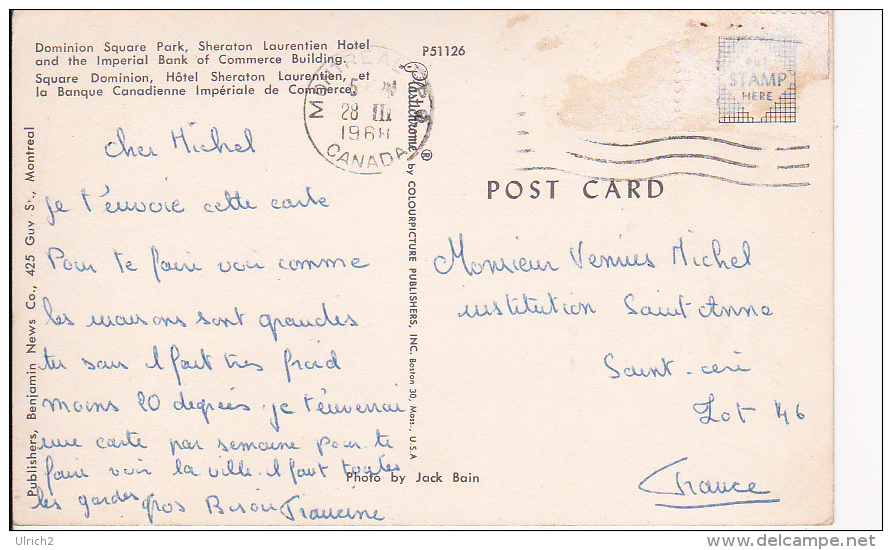 Dominion Square Park, Sheraton Laurentien Hotel
and the Imperial Bank of Commerce Building.
Square Dominion, Hôtel Sheraton Laurentien, et
la Banque Canadienne Impériale de Commerce.
P51126
MONTREAL
5 PM
28 III
1968
CANADA
PUT
STAMP
HERE
POST CARD
Publishers, Benjamin News Co., 425 Guy St., Montreal
Plastichrome® by COLOURPICTURE PUBLISHERS, INC. Boston 30, Mass., U.S.A
cher Michel
je t'envoie cette carte
Pour te faire voir comme
les maisons sont grandes
tu sais il fait tres froid
moins 20 degrées. je t'enverrai
une carte par semaine pour te
faire voir la ville. il faut toutes
les garder gros Bisou Francine
Monsieur Michel
institution Saint Anne
Saint-ceré
Lot 46
France
Photo by Jack Bain
Ulrich2
www.delcampe.net